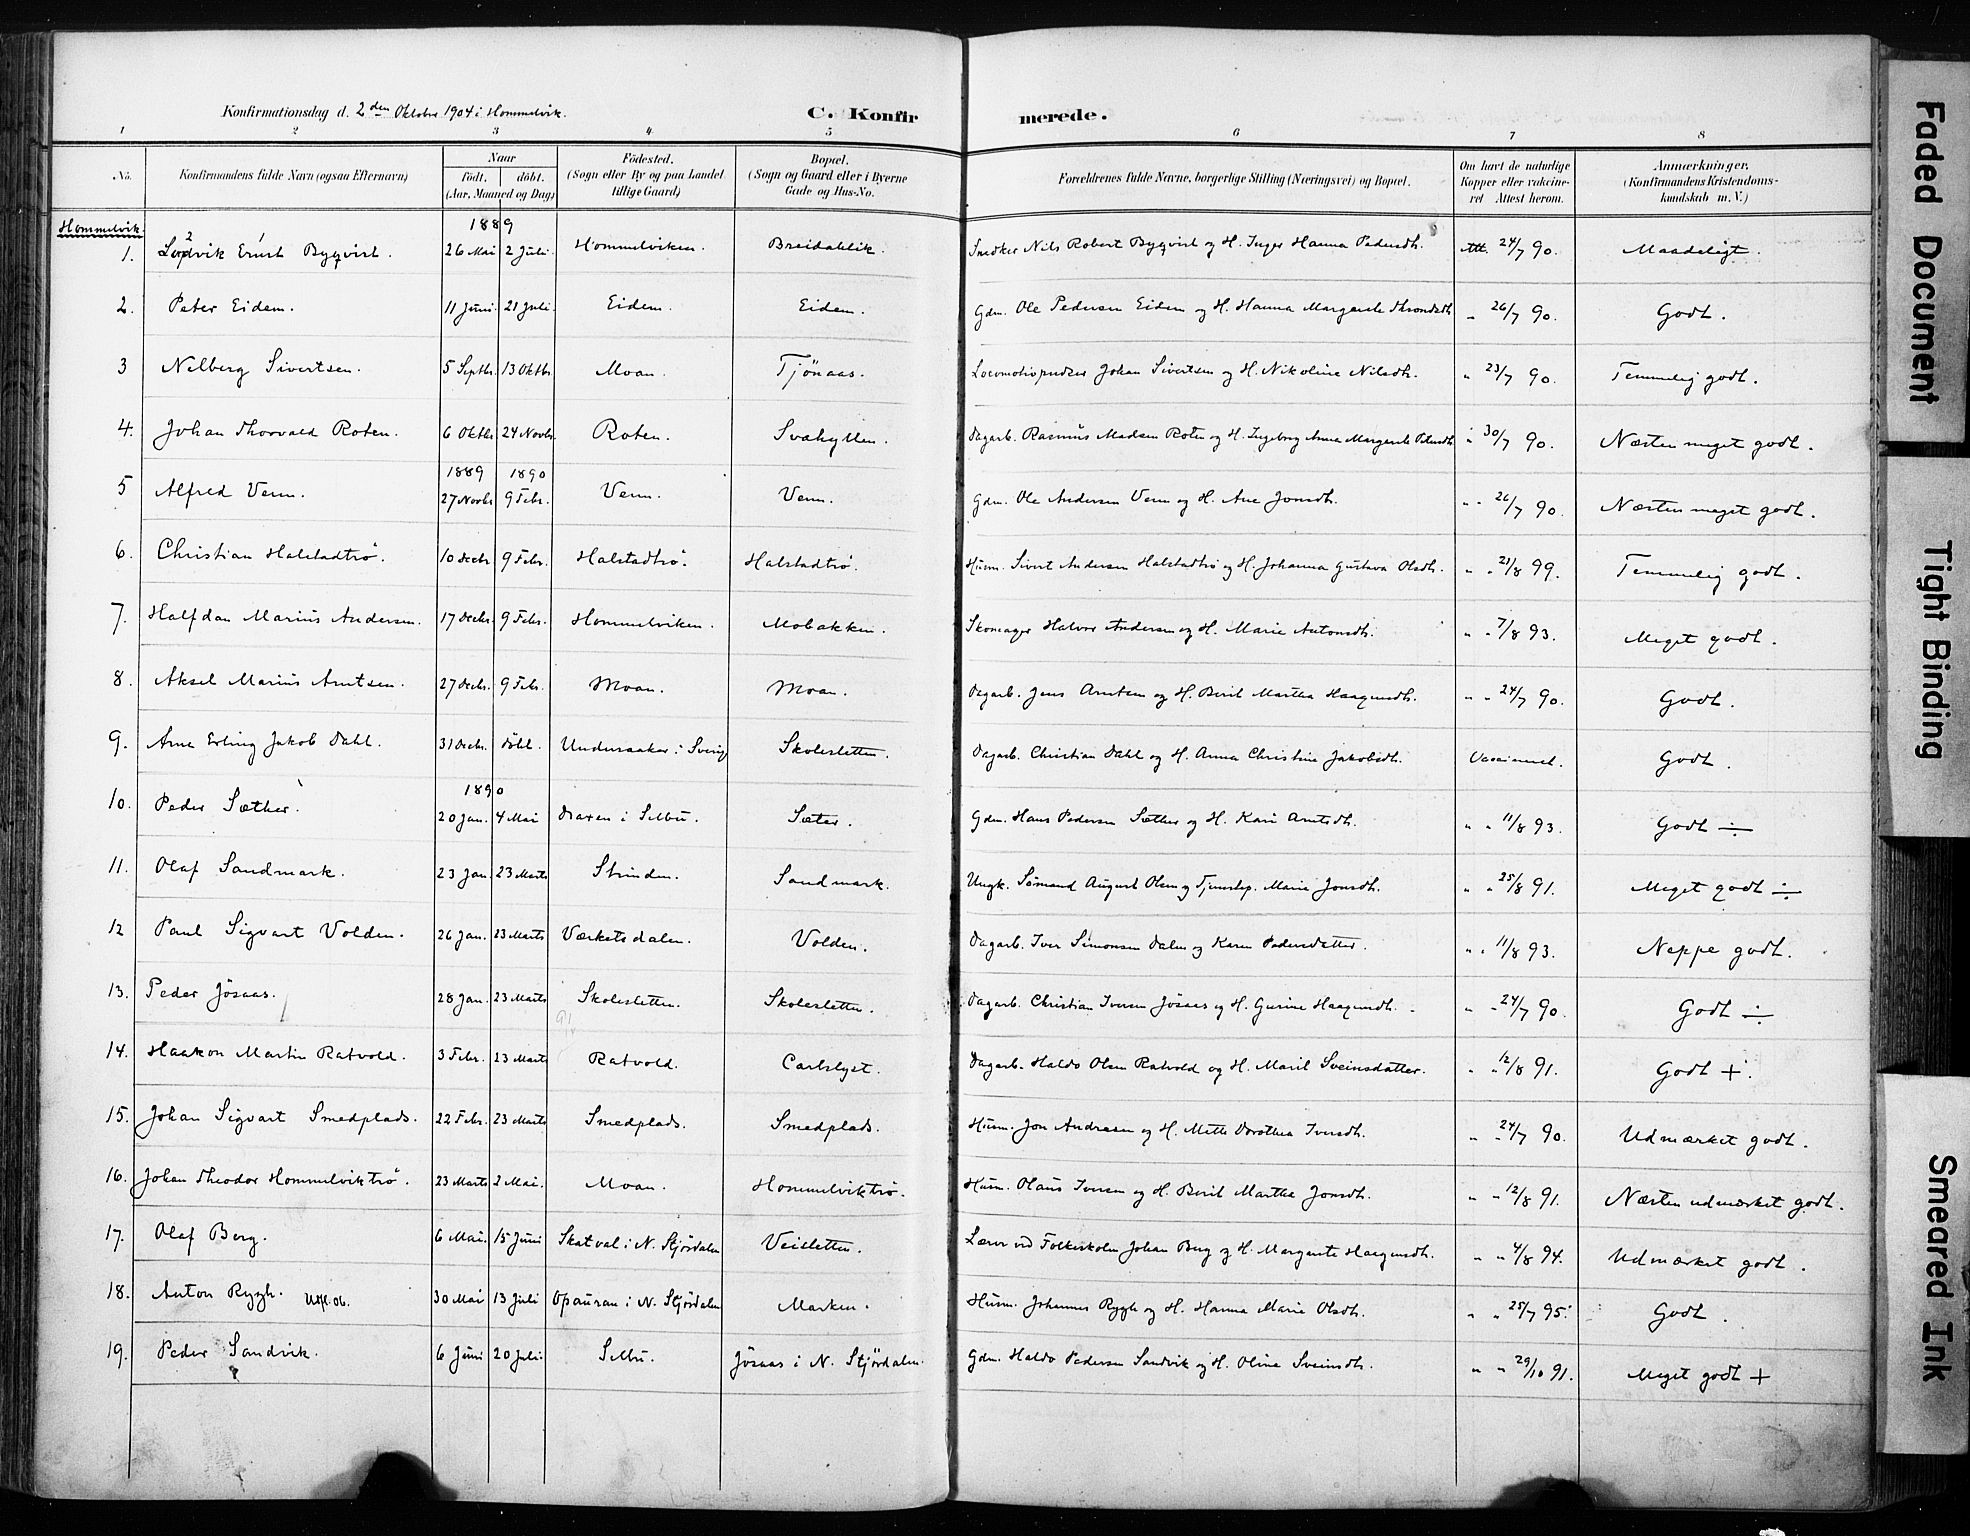 Konfirmationsdag d. 2den Oktober 1904 i Hommelvik. C. Konfirmerede.
1 2 3 4. 5 6 7 8
No. Konfirmandens fulde Navn (ogsaa Efternavn) Naar födt. döbt. (Aar, Maaned og Dag) Födested. (Sogn eller By og paa Landet tillige Gaard) Bopæl. (Sogn og Gaard eller i Byerne Gade og Hus-No. Forældrenes fulde Navne, borgerlige Stilling (Næringsvei) og Bopæl. Om havt de naturlige Kopper eller vakcineret Attest herom. Anmærkninger, (Konfirmandens Kristendomskundskab m. V.)
Hommelvik. 1889
1. Ludvik Ernst Byqvist. 26 Mai 2 Juli. Hommelviken. Breidablik. Snedker Nils Robert Byqvist og H. Inger Hanna Pedersdh. Att. 24/7 90. Maadeligt.
2. Peter Eidem. 11 Juni. 21 Juli. Eidem. Eidem. Gdm. Ole Pedersen Eidem og H. Hanna Margrete Throndsdh " 26/7 90. Godt.
3 Nelberg Sivertsen. 5 Septbr. 13 Oktbr Moan. Tjönaas. Locomotivpudser Johan Sivertsen og H. Nikoline Nilsdh. " 23/7 90. Temmelig godt.
4. Johan Thorvald Roten. 6 Oktbr 24 Novbr. Roten. Svahyllen. Dagarb. Rasmus Madsen Roten og H. Ingeborg Anna Margrete Petersdh " 30/7 90. Næsten meget godt.
1889 1890
5 Alfred Venn. 27 Novbr 9 Febr. Venn. Venn. Gdm. Ole Andersen Venn og H. Ane Jonsdh. " " 26/7 90. Næsten meget godt.
6. Christian Halstadtrö. 10 Decbr 9 Febr. Halstadtrö. Halstadtrö. Husm. Sivert Andersen Halstadtrö og H. Johanna Gustava Olsdh. " " 21/8 99. Temmelig godt.
7. Halfdan Marius Andersen. 17 Decbr. 9 Febr. Hommelviken. Mobakken. Skomager Halvor Andersen og H. Marie Antonsdh. " " 7/8 93. Meget godt.
8. Aksel Marius Arntsen. 27 Decbr. 9 Febr. Moan. Moan. Dagarb. Jens Arntsen og H. Berit Martha Haagensdh. " " 24/7 90. Godt.
9. Arne Erling Jakob Dahl. 31 Decbr. döbt. Undersaaker i Sverig Skolesletten. Dagarb. Christian Dahl og H. Anna Christine Jakobsdh. Vaccineret. Godt.
1890
10. Peder Sæther. 20 Jan. 4 Mai Draxen i Selbu. Sæter. Gdm. Hans Pedersen Sæther og H. Kari Arntsdh. " " 11/8 93. Godt ÷
11. Olaf Sandmark. 23 Jan. 23 Marts Strinden. Sandmark. Ungk. Sömand August Olsen og Tjenestep. Marie Jonsdh. " " 25/8 91. Meget godt ÷
12 Paul Sigvart Volden. 26 Jan. 23 Marts Værketsdalen. Volden. Dagarb. Iver Simonsen Dalen og Karen Pedersdatter. " " 11/8 93. Neppe godt.
13. Peder Jösaas. 28 Jan. 23 Marts Skolesletten. Skolesletten. Dagarb. Christian Iversen Jösaas og H. Gurine Haagensdh. " " 24/7 90. Godt ÷
14. Haakon Martin Ratvold. 3 Febr. 23 Marts Ratvold. Carlslyst. Dagarb. Haldo Olsen Ratvold og H. Marit Sveinsdatter. " " 12/8 91. Godt +.
15. Johan Sigvart Smedplads. 22 Febr. 23 Marts Smedplads. Smedplads. Husm. Jon Andresen og H. Mette Dorothea Iversdh. " " 24/7 90. Udmærket godt.
16. Johan Theodor Hommelviktrö. 23 Marts 2 Mai. Moan. Hommelviktrö. Husm. Olaus Iversen og H. Berit Martha Jonsdh. " " 12/8 91. Næsten udmærket godt.
17. Olaf Berg. 6 Mai. 15 Juni Skatval i N. Stjördalen Veisletten. Lærer ved Folkeskolen Johan Berg og H. Margrete Haagensdh. " " 4/8 94. Udmærket godt.
18. Anton Rygh. Utfl. 06. 30 Mai 13 Juli Opauran i N. Stjördalen Marken. Husm. Johannes Rygh og H. Hanna Marie Olsdh. " " 25/7 95. Godt.
19. Peder Sandvik. 6 Juni 20 Juli. Selbu. Jösaas i N. Stjördalen. Gdm. Haldo Pedersen Sandvik og H. Oline Sveinsdh. " " 29/10 91. Meget godt +
Faded Document
Tight Binding
Smeared Ink